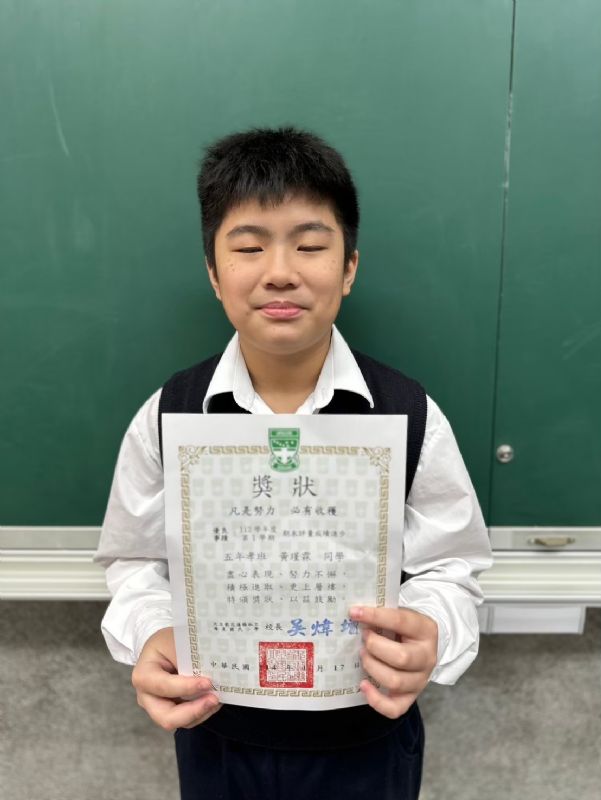 獎狀
凡是努力 必有收穫
優良事蹟：112學年度第1學期 期末評量成績進步
五年孝班 黃瑾霖 同學
盡心表現，努力不懈，
積極進取，更上層樓，
特頒獎狀，以茲鼓勵。
校長 吳煒增
中華民國 月17日